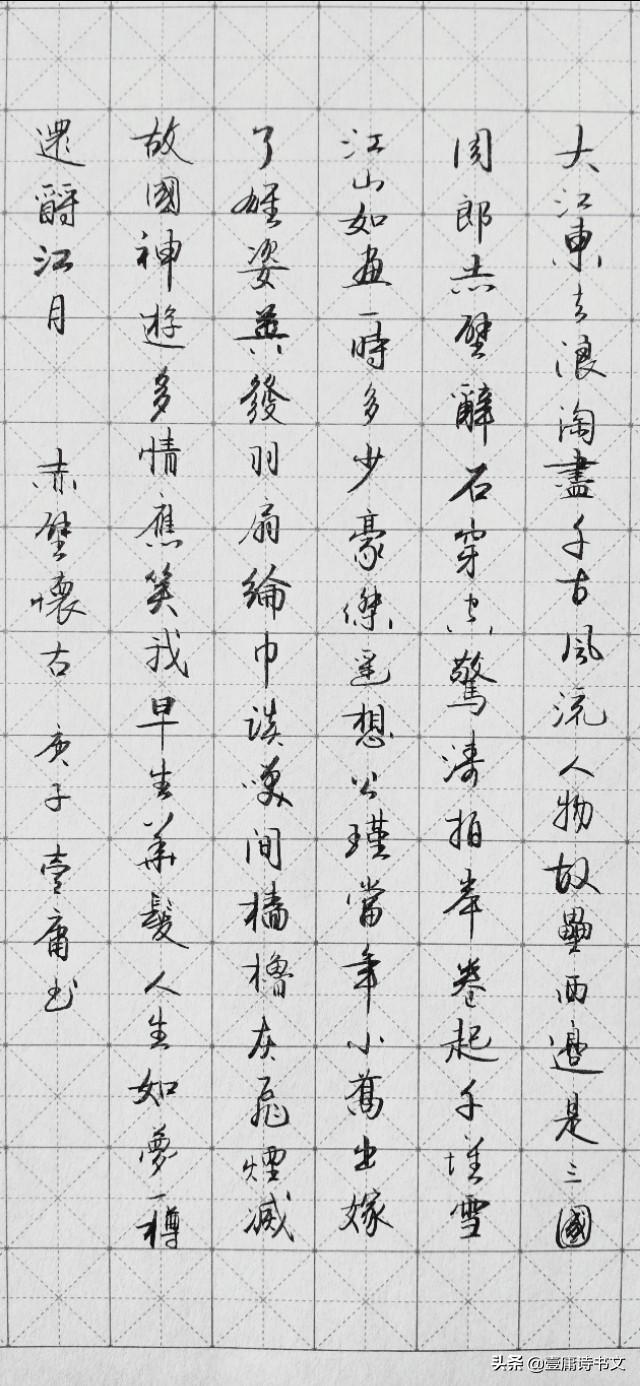 大江東去浪淘盡千古風流人物故壘西邊是三國
周郎赤壁辭石穿空驚濤拍岸卷起千堆雪
江山如畫一時多少豪傑遥想公瑾當年小出嫁
了雄姿英發羽扇綸巾談咲間檣櫓灰飛煙滅
故國神遊多情應笑我早生華髮人生如夢一樽
還江月 赤壁懷古 庚子壹庸书
头条 @壹庸诗书文